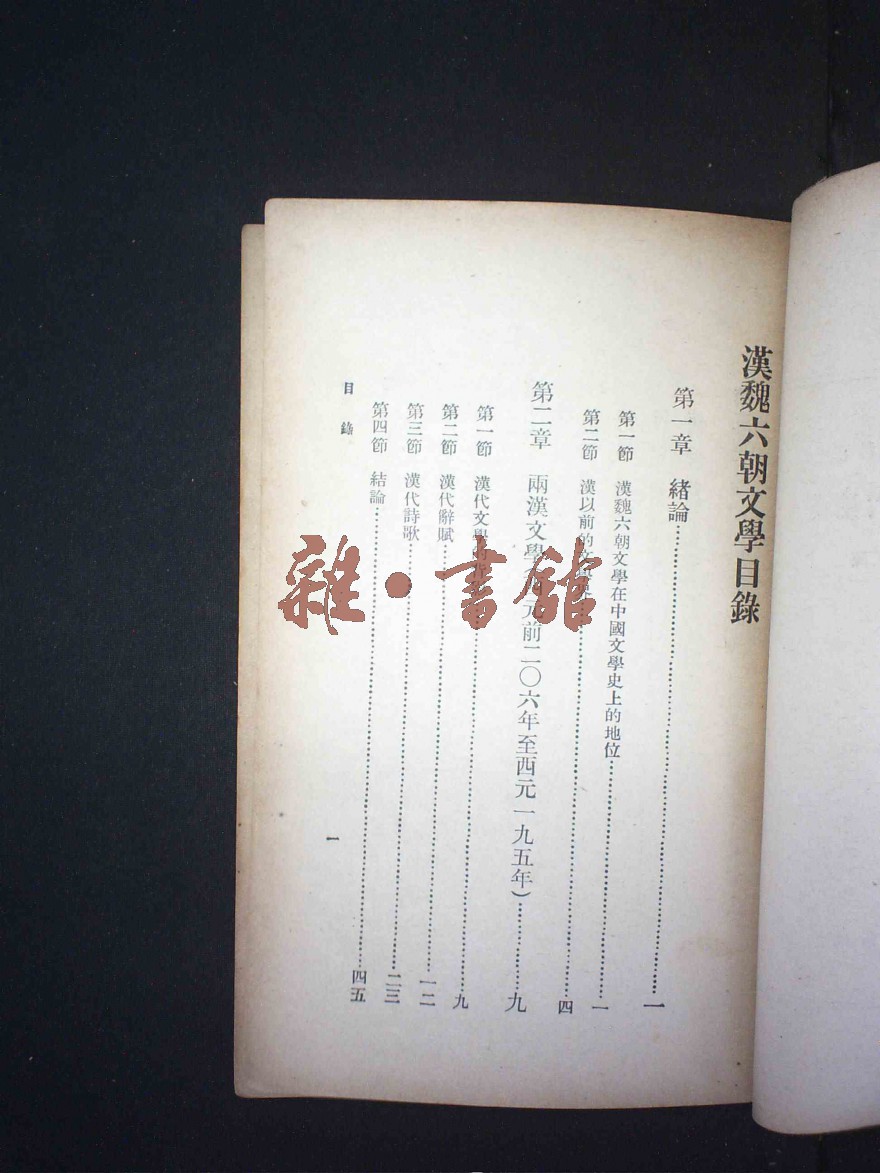 漢魏六朝文學目錄
第一章 緒論……一
第一節 漢魏六朝文學在中國文學史上的地位……一
第二節 漢以前的文學……四
第二章 兩漢文學 元前二〇六年至西元一九五年）……九
第一節 漢代文學的背……九
第二節 漢代辭賦……一二
第三節 漢代詩歌……二三
第四節 結論……四五
目錄
一
雜·書館